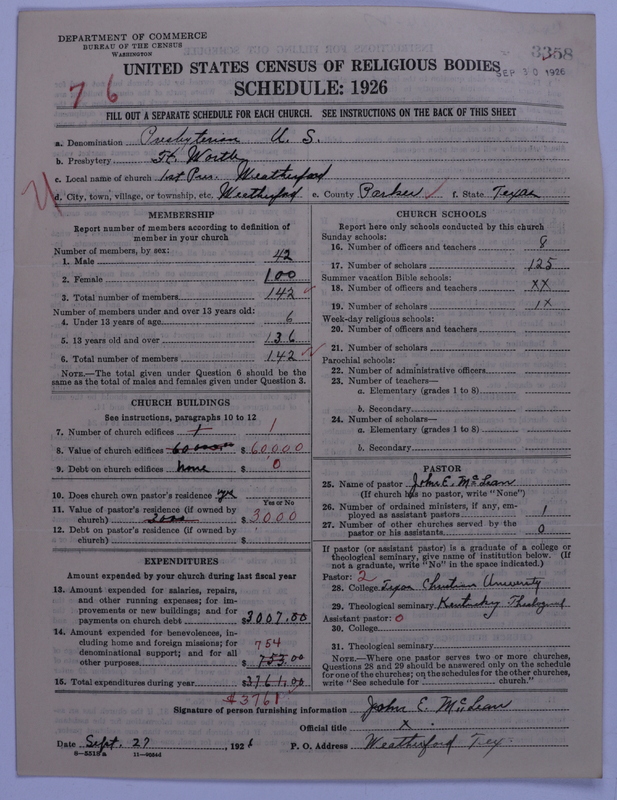 DEPARTMENT OF COMMERCE
BUREAU OF THE CENSUS
WASHINGTON
3358
SEP 30 1926
UNITED STATES CENSUS OF RELIGIOUS BODIES
7 6
SCHEDULE: 1926
FILL OUT A SEPARATE SCHEDULE FOR EACH CHURCH. SEE INSTRUCTIONS ON THE BACK OF THIS SHEET
a. Denomination Presbyterian U. S.
b. Presbytery Ft. Worth
c. Local name of church 1st Pres. Weatherford
d. City, town, village, or township, etc. Weatherford e. County Parker f. State Texas
MEMBERSHIP
Report number of members according to definition of
member in your church
Number of members, by sex:
1. Male 42
2. Female 100
3. Total number of members 142
Number of members under and over 13 years old:
4. Under 13 years of age 6
5. 13 years old and over 136
6. Total number of members 142
NOTE.—The total given under Question 6 should be
same as the total of males and females given under Question 3.
CHURCH BUILDINGS
See instructions, paragraphs 10 to 12
7. Number of church edifices 1 1
8. Value of church edifices 60,000.00 $ 60,000
9. Debt on church edifices None $ 0
10. Does church own pastor's residence? yes
Yes or No
11. Value of pastor's residence (if owned by
church) 3000 $ 3,000
12. Debt on pastor's residence (if owned by
church) $
EXPENDITURES
Amount expended by your church during last fiscal year
13. Amount expended for salaries, repairs,
and other running expenses; for im-
provements or new buildings; and for
payments on church debt $3007.00
14. Amount expended for benevolences, in-
cluding home and foreign missions; for
denominational support; and for all
other purposes 754 $ 753.00
15. Total expenditures during year $3761.00
$3761
CHURCH SCHOOLS
Report here only schools conducted by this church
Sunday schools:
16. Number of officers and teachers 8
17. Number of scholars 125
Summer vacation Bible schools:
18. Number of officers and teachers XX
19. Number of scholars 1X
Week-day religious schools:
20. Number of officers and teachers
21. Number of scholars
Parochial schools:
22. Number of administrative officers
23. Number of teachers—
a. Elementary (grades 1 to 8)
b. Secondary
24. Number of scholars—
a. Elementary (grades 1 to 8)
b. Secondary
PASTOR
25. Name of pastor John E. McLean
(If church has no pastor, write "None")
26. Number of ordained ministers, if any, em-
ployed as assistant pastors 1
27. Number of other churches served by the
pastor or his assistants 0
If pastor (or assistant pastor) is a graduate of a college or
theological seminary, give name of institution below. (If
not a graduate, write "No" in the space indicated.)
Pastor: 2
28. College Texas Christian University
29. Theological seminary Kentucky Theological
Assistant pastor: 0
30. College
31. Theological seminary
NOTE.—Where one pastor serves two or more churches,
Questions 28 and 29 should be answered only on the schedule
for one of the churches; on the schedules for the other churches,
write "See schedule for church."
Signature of person furnishing information John E. McLean
Official title X
Date Sept. 27, 1926 P. O. Address Weatherford Tex
8—5515a 11—9054d